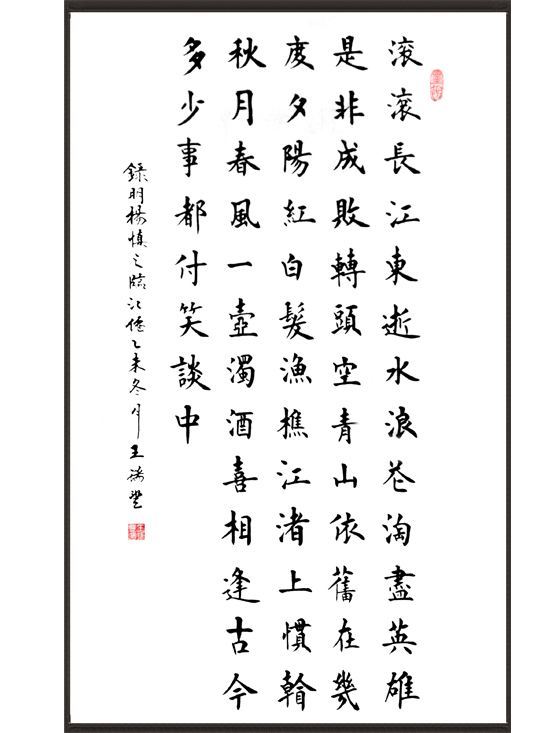 滚滚長江東逝水浪花淘盡英雄
是非成敗轉頭空青山依舊在幾
度夕陽紅白髮漁樵江渚上慣看
秋月春風一壺濁酒喜相逢古今
多少事都付笑談中
錄明楊慎之臨江僊乙未冬月王